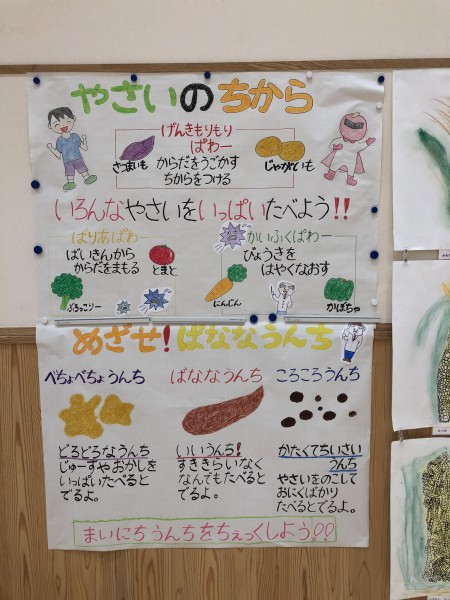 やさいのちから
げんきもりもり
ぱわー
さつまいも
からだをうごかす
ちからをつける
じゃがいも
いろんなやさいをいっぱいたべよう!!
ばりあぱわー
ばいきんから
からだをまもる
とまと
ぶろっこりー
かいふくぱわー
びょうきを
はやくなおす
にんじん
かぼちゃ
めざせ!ばななうんち
べちょべちょうんち
どろどろなうんち
じゅーすやおかしを
いっぱいたべると
でるよ。
ばななうんち
いいうんち!
すききらいなく
なんでもたべると
でるよ。
ころころうんち
かたくてちいさい
うんち
やさいをのこして
おにくばかり
たべるとでるよ。
まいにちうんちをちぇっくしよう!!